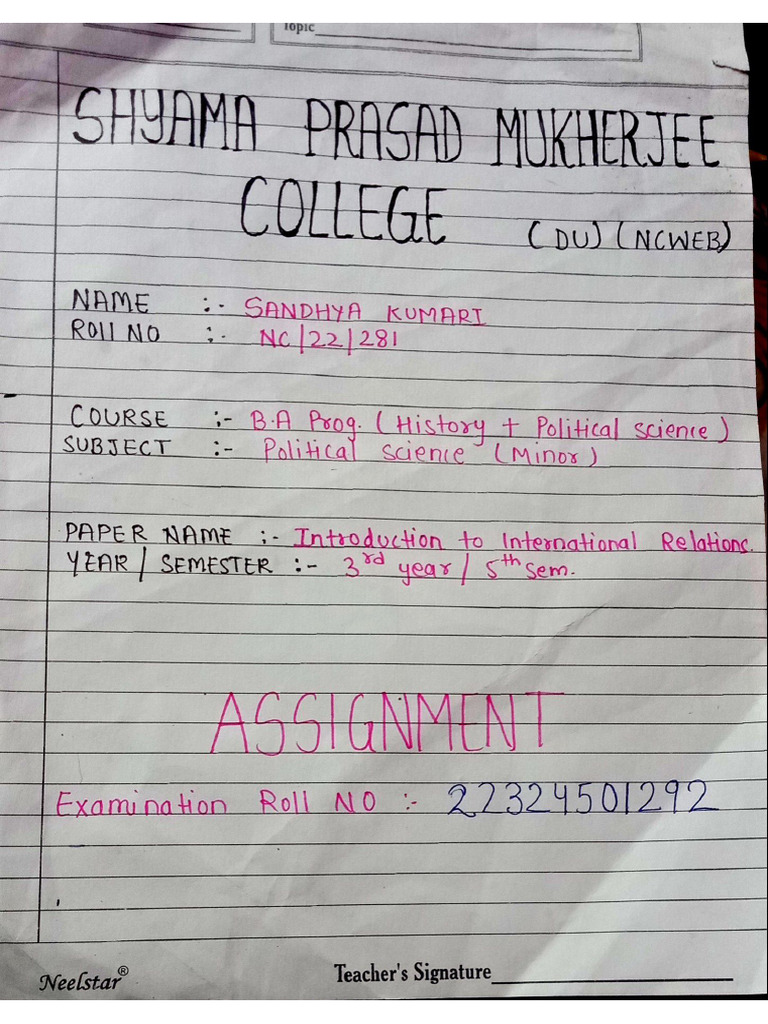 Topic
SHYAMA PRASAD MUKHERJEE
COLLEGE (DU) (NCWEB)
NAME :- SANDHYA KUMARI
ROll NO :- NC/22/281
COURSE :- B.A Prog. (History + Political science)
SUBJECT :- Political science (Minor)
PAPER NAME :- Introduction to International Relations.
YEAR/ SEMESTER :- 3rd year/ 5th sem.
ASSIGNMENT
Examination Roll NO :- 22324501292
Neelstar® Teacher's Signature